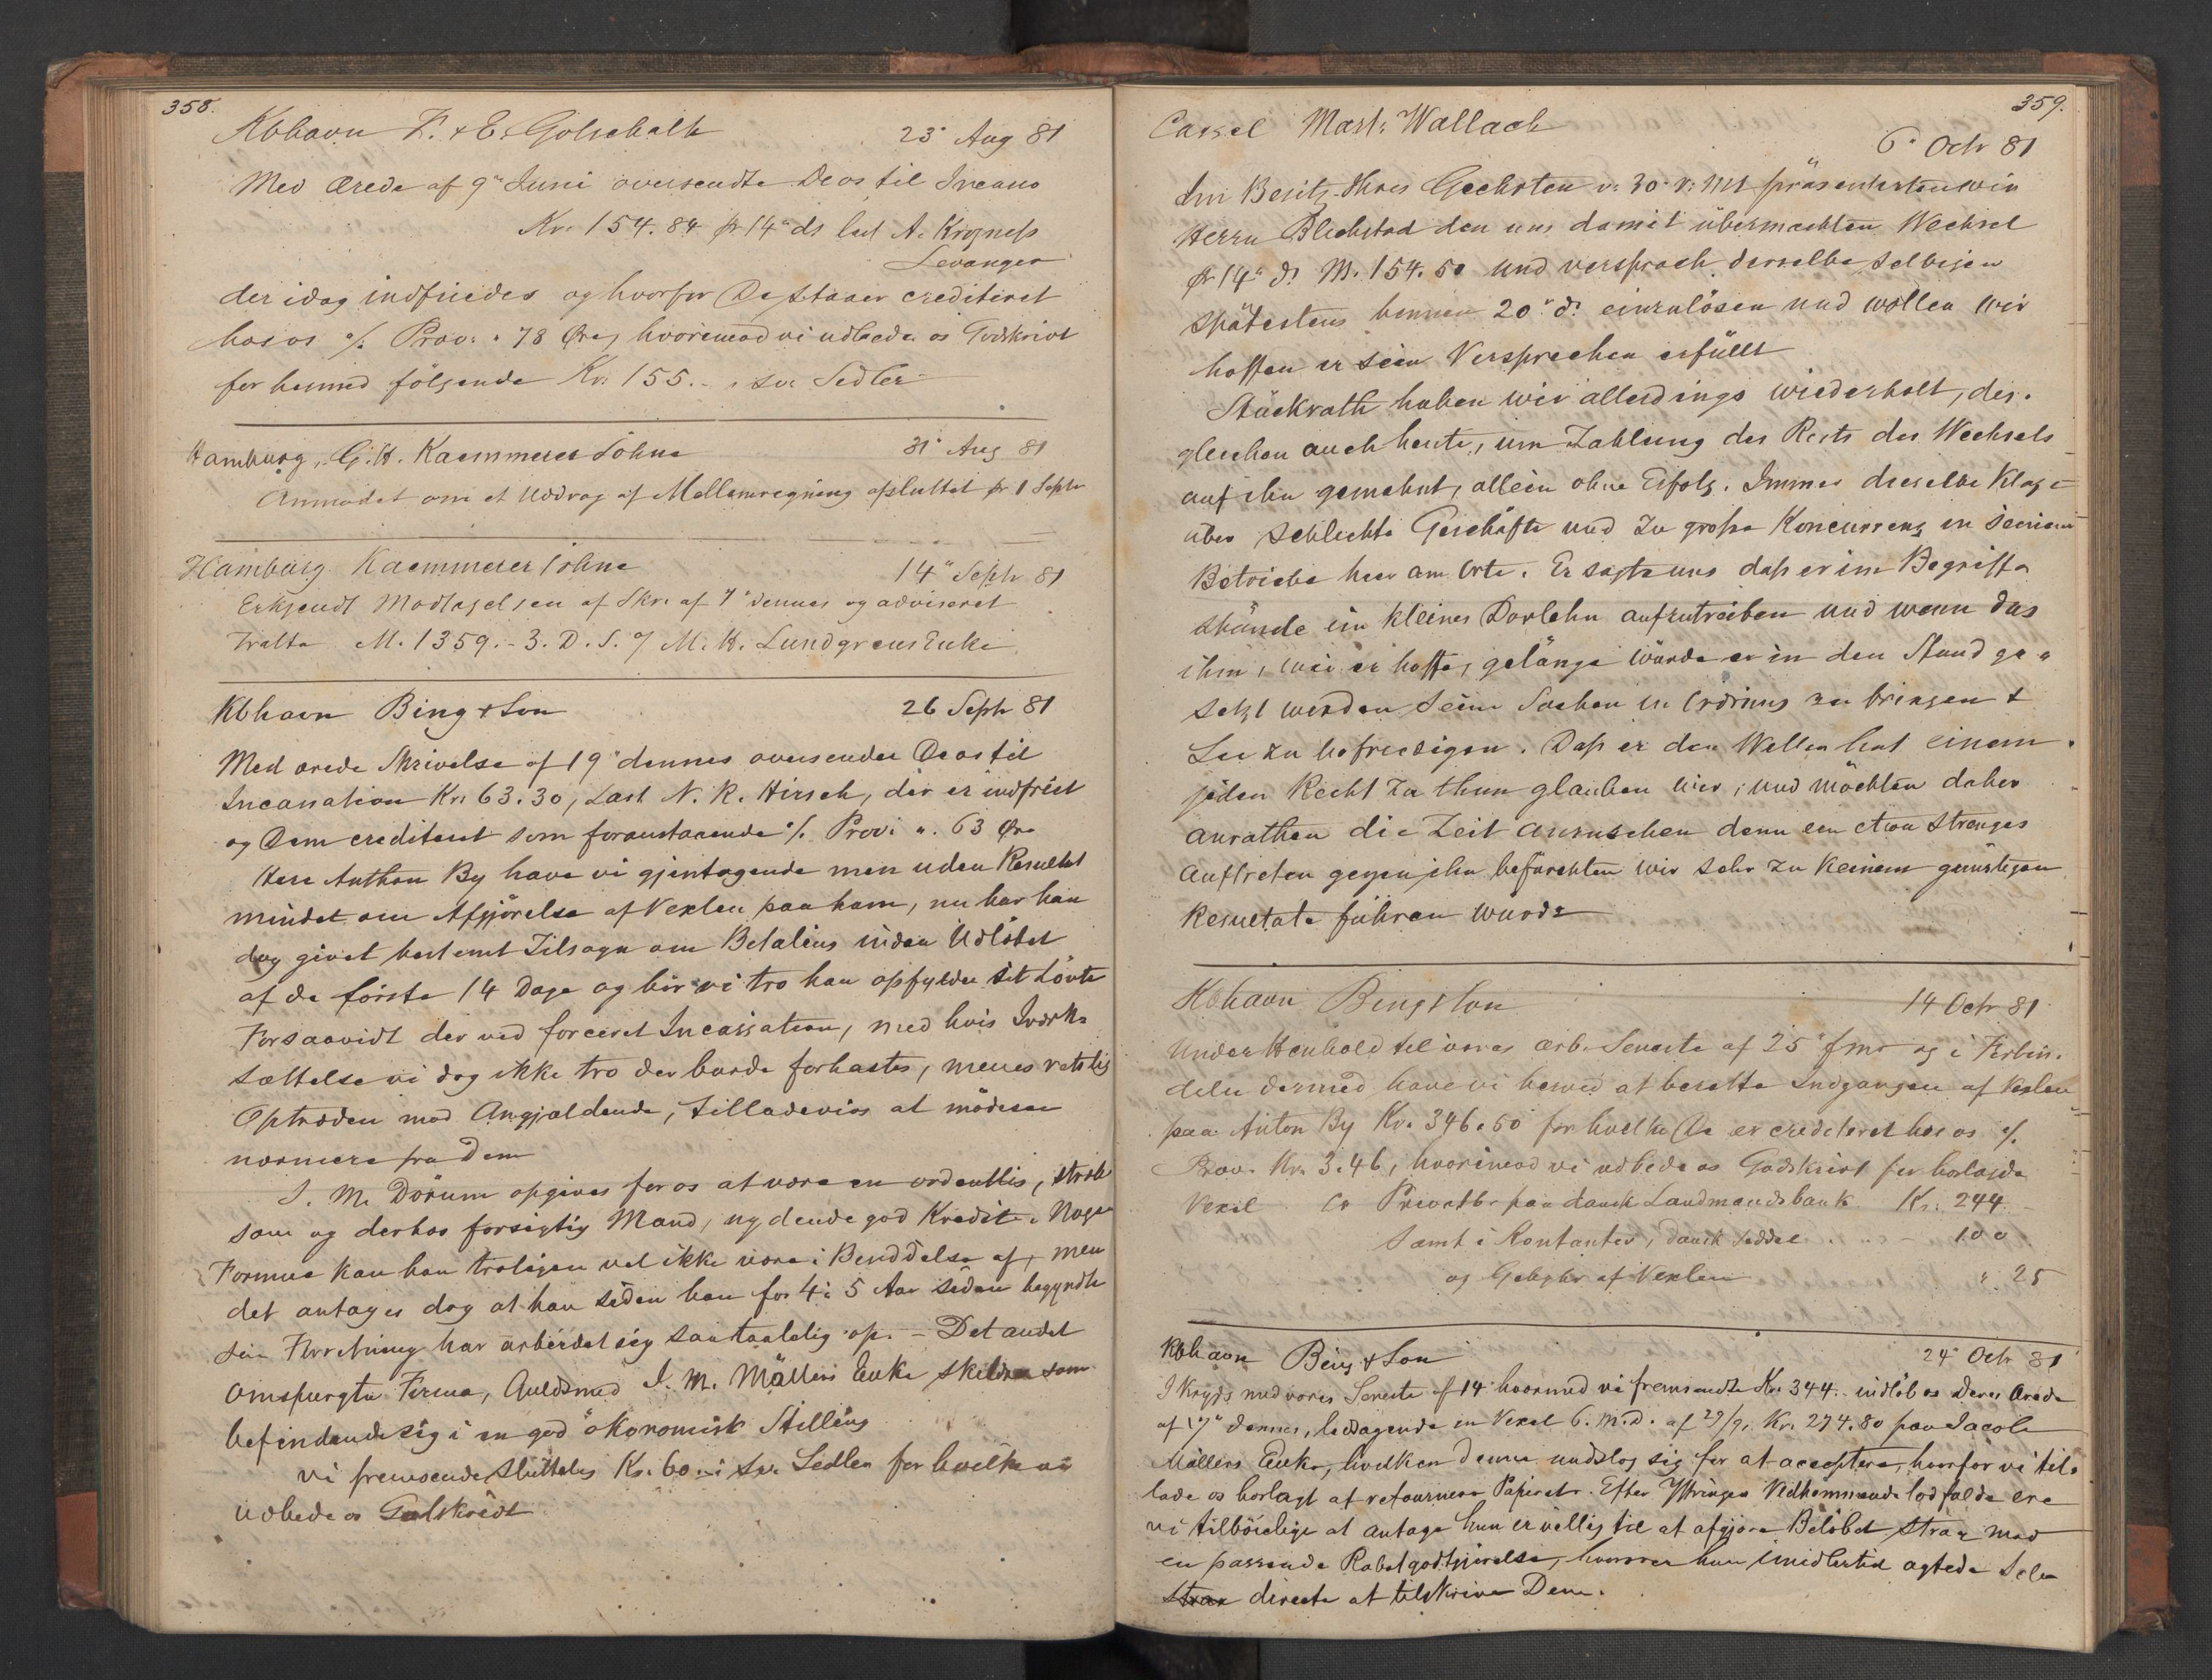 358.
Kbhavn F. & E. Gotschalk 23' Aug 81
Med ærede af 9" Juni oversendte De os til Incasso
Kr. 154. 84 pr 14" ds last A. Krogness
Levanger
der idag indfriedes og hvorfor De staaer crediteret
hos os ./. Prov. " 78 Øre, hvorimod vi udbede os Godskrivt
for hermed følgende Kr. 155.- i sv. Sedler
Hamburg, G. H. Kaemmerer Söhne 31' Aug 81
Anmodet om et Uddrag af Mellemregning afsluttet pr 1 Septr
Hamburg Kaemmerer Söhne 14" Septr 81
Erkjendt Modtagelsen af Skr. af 7" dennes og adviseret
Tratta M. 1359.- 3. D. S. % M. H. Lundgrens Enke
Kbhavn Bing & Søn 26 Septr 81
Med ærede Skrivelse af 19" dennes oversender De os til
Incassation Kr. 63.30, Last N. R. Hirsch, der er indfriet
og Dem crediteret som foranstaaende ./. Prov. ". 63 Øre
Herr Anthon By have vi gjentagende men uden Resultat
mindet om Afgjörelse af Vexlen paa ham, nu har han
dog givet bestemt Tilsagn om Betaling inden Udlöbet
af de förste 14 Dage og bör vi tro han opfylder sit Lövte
Forsaavidt der ved forceret Incassation, med hvis Iværk-
sættelse vi dog ikke tro der burde forhastes, menes retslig
Optræden mod Angjældende, tillade vi os at mödesee
nærmere fra Dem
I. M. Dörum opgives for os at være en ordentlig, stræb
som og derhos forsigtig Mand, nydende god Kredit. Nogen
Formue kan han troligen vel ikke være i Besiddelse af, men
det antages dog at han siden han for 4 à 5 Aar siden begyndte
sin Forretning har arbeidet sig saa taalelig op. - Det andet
omspurgte Firma, Guldsmed I. M. Möllers Enke skildres som
befindende sig i en god ökonomisk Stilling
Vi fremsende sluttelig Kr. 60.- i sv. Sedler for hvilke vi
udbede os Godskrivt
359.
Cassel Mart. Wallach
6' Octr 81
Im Besitz Ihres Geehrten v. 30' v. Mts präsentirten wir
Herrn Blechstad den uns damit übermachten Wechsel
pr 14" ds M. 154. 50 und versprach derselbe selbigen
spätestens binnen 20" ds einzulösen und wollen wir
hoffen er sein Versprechen erfüllt
Stückrath haben wir allerdings wiederholt, des-
gleichen auch heute, um Zahlung des Rests des Wechsels
auf ihn gemahnt, allein ohne Erfolg. Immer dieselbe Klage
über schlechte Geschäfte und zu große Koncurrenz in seinem
Betriebe hier am Orte. Er sagte uns daß er im Begriffe
stände ein kleines Darlehn aufzutreiben und wenn das
ihm, wie er hoffe, gelänge würde er in den Stand ge-
setzt werden seine Sachen in Ordnung zu bringen &
Sie zu befriedigen. Daß er den Willen hat einem
jeden Recht zu thun glauben wir, und möchten daher
anrathen die Zeit anzusehen denn ein etwa strenges
Auftreten gegen ihn befürchten wir sehr zu keinem günstigen
Resultate führen würde
Kbhavn Bing & Søn 14 Octr 81
Under Henhold til vores ærb. Seneste af 25" fm og i Forbin-
delse dermed have vi herved at berette Indgangen af Vexlen
paa Anton By Kr. 346.50 for hvilke De er crediteret hos os ./.
Prov. Kr. 3.46, hvorimod vi udbede os Godskrivt for hoslagde
Vexel pr Privatbk paa dansk Landmandsbank Kr. 244.-
samt i Kontanter, dansk Seddel - 100
og Gebyhr af Vexlen ". 25
Kbhavn Bing & Søn 24' Octr 81
I Kryds med vores Seneste af 14' hvormed vi fremsendte Kr. 344.- indlöb os Deres Ærede
af 17" dennes, ledsagende en Vexel 6. M. D. af 29/9. Kr. 274.80 paa Jacob
Möllers Enke, hvilken denne undslog sig for at acceptere, hvorfor vi til-
lade os hoslagt at retournere Papiret. Efter Yttringer Vedkommende lod falde ere
vi tilböielige at antage hun er villig til at afgjöre Belöbet strax mod
en passende Rabatgodtgjörelse, hvorover hun imidlertid agtede selv
strax directe at tilskrive Dem.